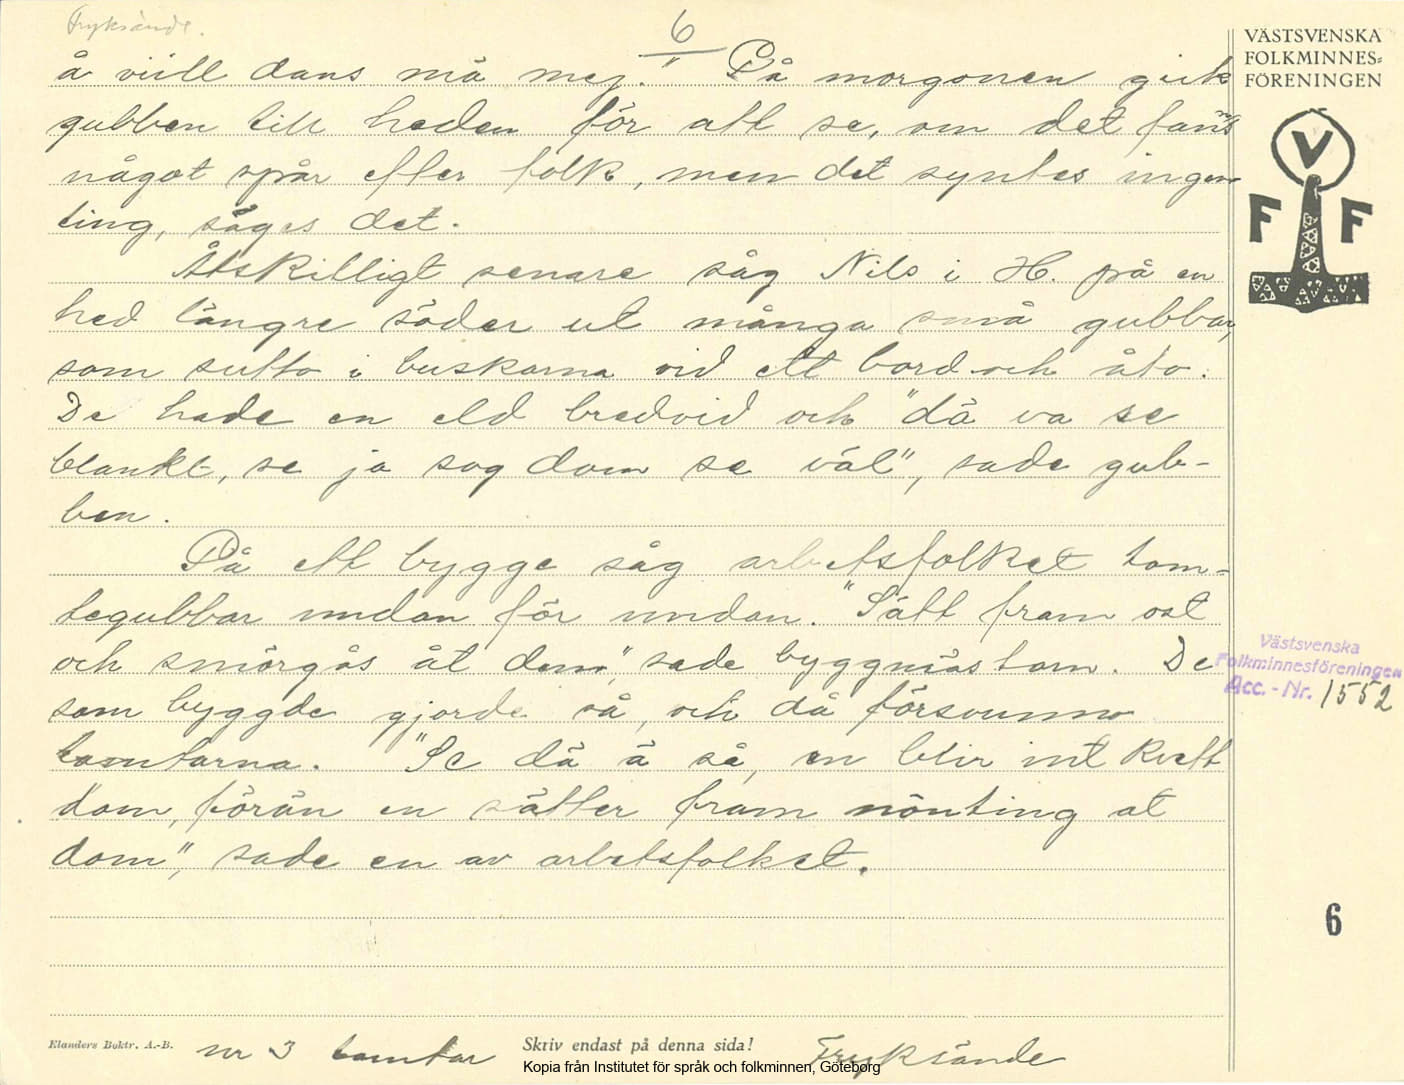 Fryksände.
6
å viill dans mä mej." På morgonen gick
gubben till heden för att se, om det fanns
något spår efter folk, men det syntes ingen
ting, säges det.
Åtskilligt senare såg Nils i H. på en
hed längre söder ut många små gubbar,
som sutto i buskarna vid ett bord och åto.
De hade en eld bredvid och "dä va se
blankt, se ja sog dom se väl", sade gub-
ben.
På ett bygge såg arbetsfolket tom-
tegubbar undan för undan. "Sätt fram ost
och smörgås åt dem", sade byggmästarn. De
som byggde gjorde så, och då försvunno
tomtarna. "Se dä ä så, en blir int kvett
dom, förän en sätter fram nönting åt
dom", sade en av arbetsfolket.
VÄSTSVENSKA
FOLKMINNES-
FÖRENINGEN
V
F F
Västsvenska
Folkminnesföreningen
Acc.-Nr. 1552
6
Elanders Boktr. A.-B.
nr 3 tomtar
Skriv endast på denna sida!
Fryksände
Kopia från Institutet för språk och folkminnen, Göteborg